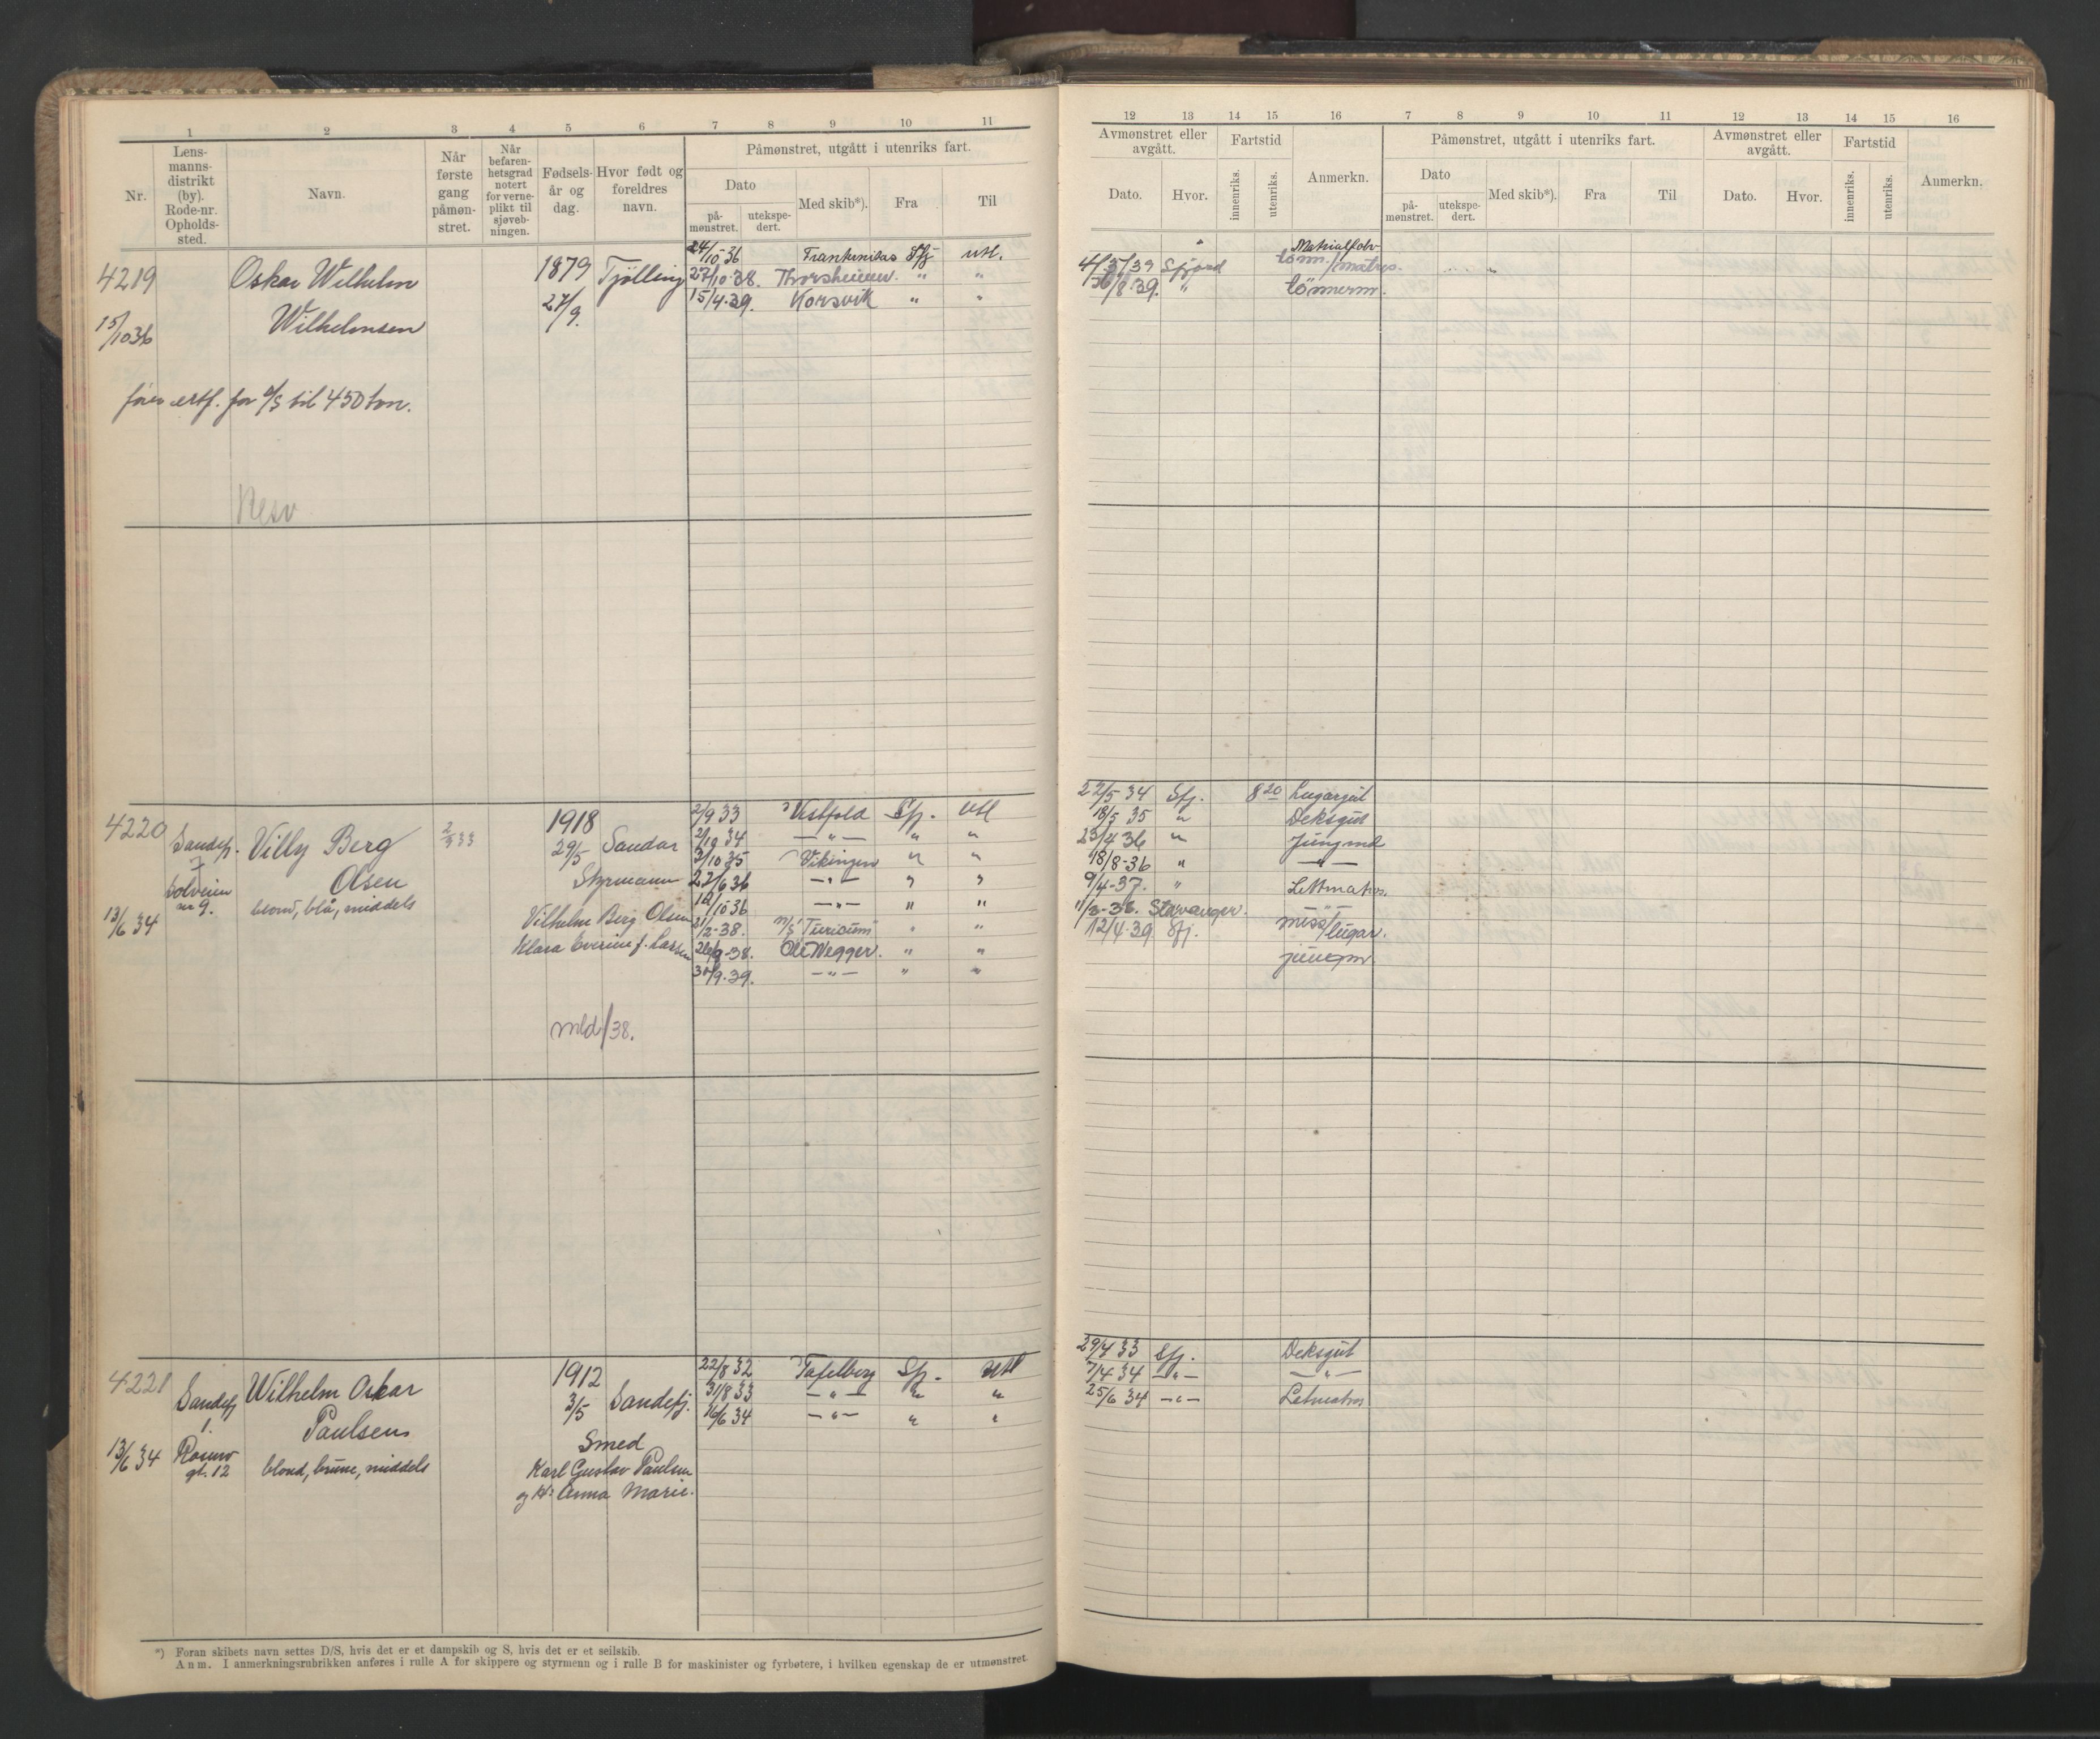 1 2 3 4 5 6 7 8 9 10 11
Nr. Lensmannsdistrikt (by). Rode-nr. Opholdssted. Navn. Når første gang påmønstret. Når befarenhetsgrad notert for verneplikt til sjøvebningen. Fødselsår og dag. Hvor født og foreldres navn. Påmønstret, utgått i utenriks fart.
Dato Med skib*). Fra Til
påmønstret. utekspedert.
4219 Oskar Wilhelm 1879 Tjølling 24/10-36 Sfj utl.
27/10-38. Thorsheimer " "
15/10 36 Wilhelmsen 27/9. 15/4-39. Korsvik " "
ertf. for til 450 ton.
Resv
4220 Sandefj. Villy Berg 2/9 33 1918 Sandar 2/9 33 Vestfold Sfj. Utl
7 29/5 2/10 34 —"— " "
Solveien Olsen Styrmann 3/10 35 Vikingen " "
nr 9. 22/6 36 —"— " "
13/6 34 blond, blå, middels 12/10 36 —"— " "
Vilhelm Berg Olsen 21/2-38. M/S Turicum " "
Klara Everine f. Larsen 26/9-38. Ole Wegger. " "
30/9-39. —"— " "
mld/38.
4221 Sandefj Wilhelm Oskar 1912 Sandefj. 22/8 32 Tafelberg Sfj. Utl
1. Paulsen 3/5 31/8 33 —"— " "
16/6 34 —"— " "
Smed
13/6 34 gt. 12 blond, brune, middels Karl Gustav Paulsen
og H: Anna Marie.
*) Foran skibets navn settes D/S, hvis det er et dampskib og S, hvis det er et seilskib.
Anm. I anmerkningsrubrikken anføres i rulle A for skippere og styrmenn og i rulle B for maskinister og fyrbøtere, i hvilken egenskap de er utmønstret
12 13 14 15 16 7 8 9 10 11 12 13 14 15 16
Avmønstret eller avgått. Fartstid Anmerkn. Påmønstret, utgått i utenriks fart. Avmønstret eller avgått. Fartstid Anmerkn.
Dato. Hvor. innenriks. utenriks. Dato Med skib*). Fra Til Dato. Hvor. innenriks. utenriks.
påmønstret. utekspedert.
4/5 39 Sfjord tømm./matros.
/8-39. " tømmerm.
22/5 34 Sfj. 8 20 Lugargut
18/5 35 " Deksgut
23/4 36 " Jungmd
18/8-36 " —"—
9/4-37. " Lettmatros.
11/3-38. Stavanger. —"—
12/4-39 Sfj. mess/lugar.
jungm.
29/4 33 Sfj. Deksgut
7/4 34 —"— —"—
25/6 34 —"— Letmatros